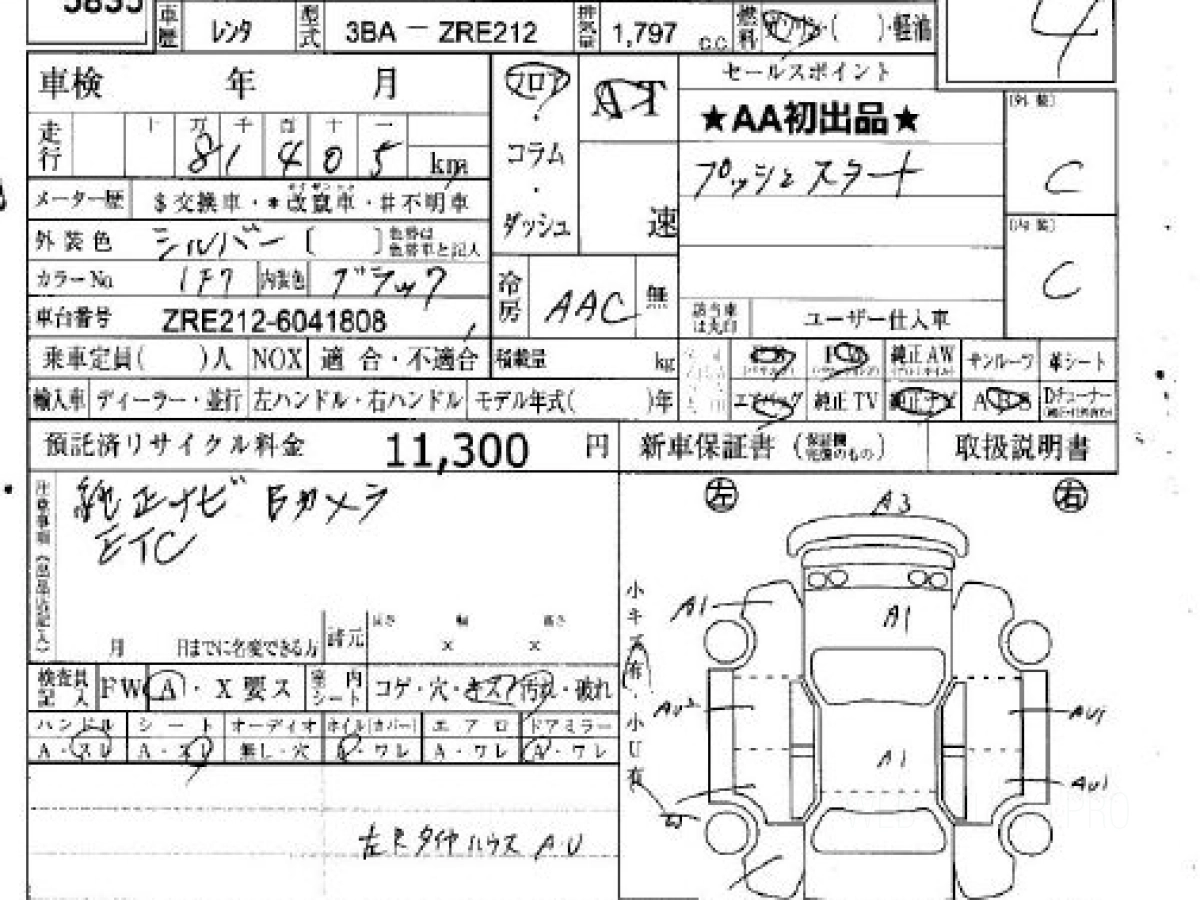 車歴 レンタ 型式 3BA－ZRE212 排気量 1,797 C.C. 燃料 ガソリン・( )・軽油 4
車検 年 月 フロア AT セールスポイント (外装)
★AA初出品★
走行 十 万 千 百 十 一
8 1 4 0 5 km
・コラム プッシュスタート C
メーター歴 $交換車・*改竄車・#不明車
・ダッシュ 速 (内装)
外装色 シルバー [ ] 色替は色替車と記入
カラーNo 1F7 内装色 ブラック 冷房 AAC 無 C
車台番号 ZRE212-6041808 該当車は丸印 ユーザー仕入車
乗車定員( )人 NOX 適合・不適合 積載量 kg PS PW 純正AW サンルーフ 革シート
輸入車 ディーラー・並行 左ハンドル・右ハンドル モデル年式( )年 エアバッグ 純正TV 純正ナビ ABS Dチューナー
預託済リサイクル料金 11,300 円 新車保証書 取扱説明書
純正ナビ Bカメラ
ETC
左 右
A3
A1 A1
小キズ有・小U有
月 日までに名変できる方 諸元 長さ × 幅 × 高さ
検査員記入 FW A・X要ス 室内シート コゲ・穴・キズ・汚れ・破れ
AU2 AU1
ハンドル シート オーディオ ホイル(カバー) エアロ ドアミラー
A・スレ A・スレ 無し・穴 A・ワレ A・ワレ A・ワレ
A1 AU1
左Rタイヤハウス AU